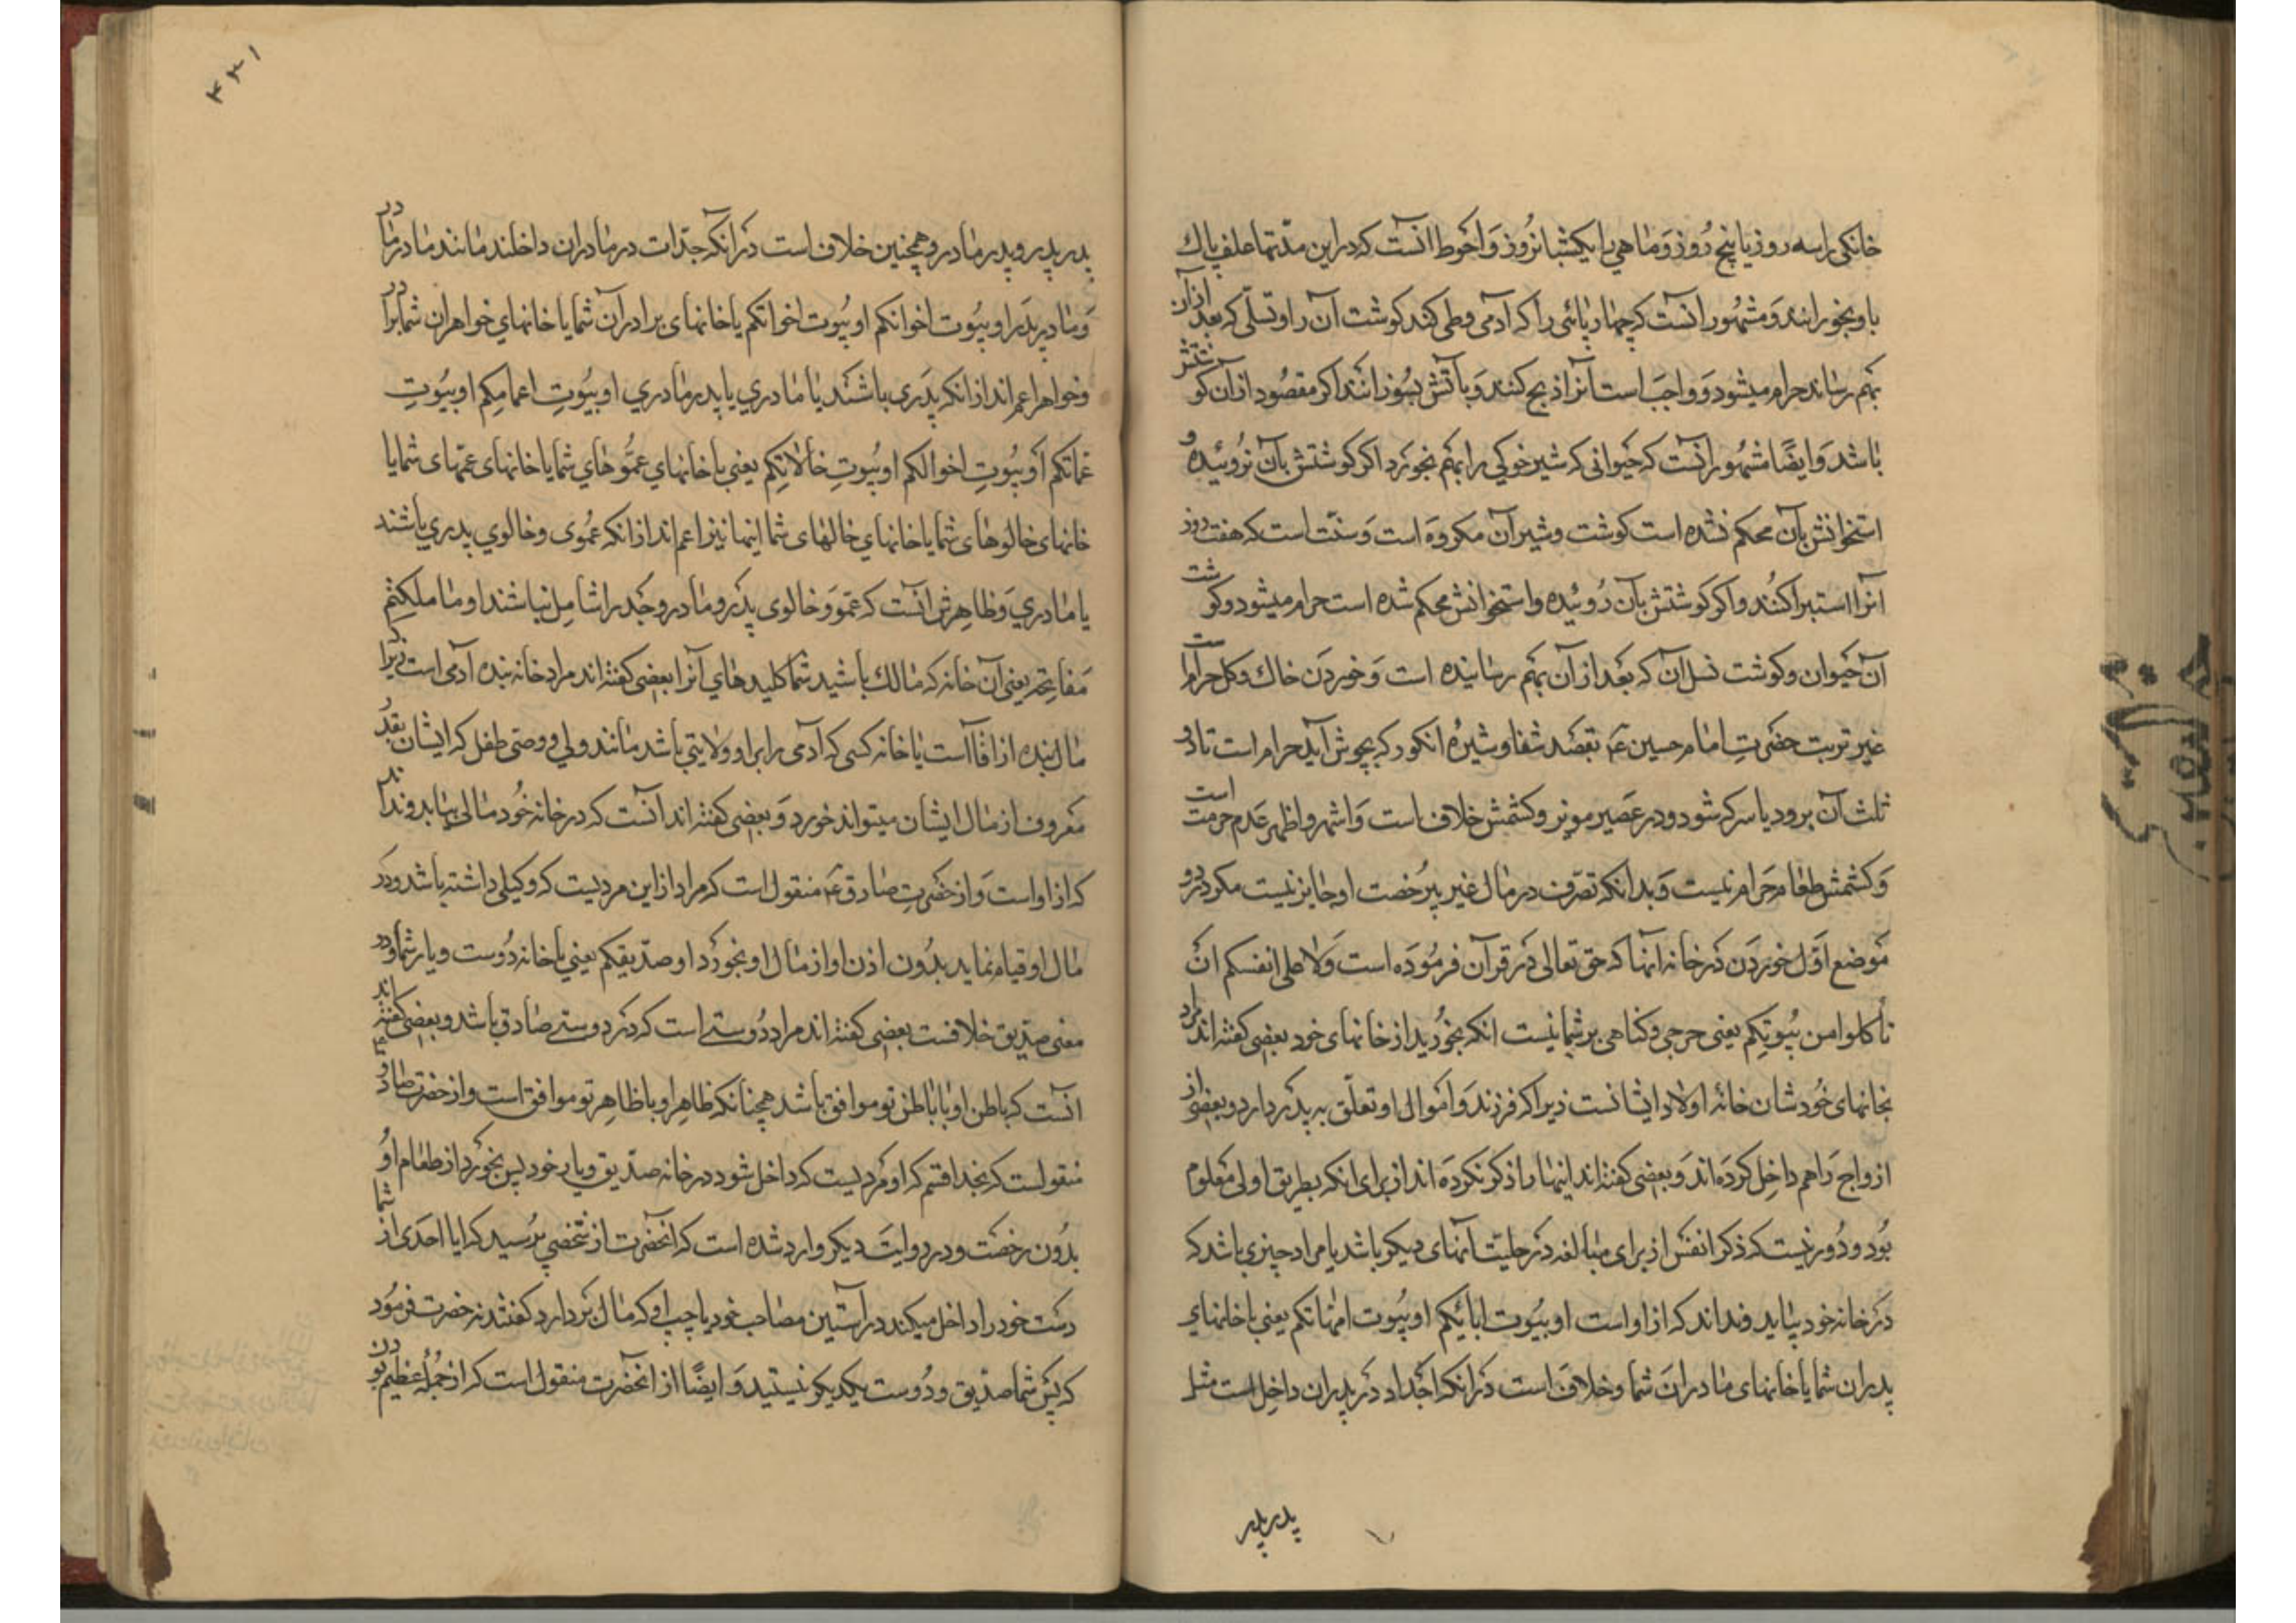 خانکی را سه روز یا پنج روز و ماهی را یکشبانروز و احوط آنست که در این مدتها علف پاک
باو بخورانند و مشهور آنست که چهار پائی را که آدمی وطی کند کوشت آن را و نسلی که بعد از آن
بهم رساند حرام میشود و واجب است آنرا ذبح کنند و بآتش بسوزانند اکر مقصود از آن کوشتش
باشد و ایضا مشهور آنست که حیوانی که شیر خوکی را بهم بخورد اکر کوشتش بآن نروئیده و
استخوانش بآن محکم نشده است کوشت و شیر آن مکروه است و سنت است که هفت روز
آنرا استبرا کنند و اکر کوشتش بآن روئیده و استخوانش محکم شده است حرام میشود و کوشت
آن حیوان و کوشت نسل آن که بعد از آن بهم رسانیده است و خوردن خاک و کل حرام است
غیر تربت حضرت امام حسین ع بقصد شفا و شیره انکور که بجوش آید حرام است تا دو
ثلث آن برود یا سرکه شود و در عصیر مویز و کشمش خلاف است و اشهر و اظهر عدم حرمت است
و کشمش طعام حرام نیست و بدانکه تصرف در مال غیر بیرخصت او جایز نیست مکر در دو
موضع اول خوردن در خانه آنها که حق تعالی در قرآن فرموده است ولا علی انفسکم ان
تأکلوا من بیوتکم یعنی حرجی و کناهی بر شما نیست انکه بخورید از خانهای خود بعضی کفته اند مراد
بخانهای خودشان خانهٔ اولاد ایشانست زیرا که فرزند و اموال او تعلق به پدر دارد و بعضی از
ازواج را هم داخل کرده اند و بعضی کفته اند اینها را ذکر نکرده اند از برای انکه بطریق اولی معلوم
بود و دور نیست که ذکر انفس از برای مبالغه در حلیت آنهای دیکر باشد یا مراد چیزی باشد که
در خانه خود بیابد و نداند که از او است او بیوت ابائکم او بیوت امهاتکم یعنی یا خانهای
پدران شما یا خانهای مادران شما و خلاف است در انکه اجداد در پدران داخل است مثل
پدر پدر
۴۳۱
پدر پدر و پدر مادر و همچنین خلاف است در آنکه جدات در مادران داخلند مانند مادر مادر
و مادر پدر او بیوت اخوانکم او بیوت اخواتکم یا خانهای برادران شما یا خانهای خواهران شما برادر
و خواهر اعم اند از انکه پدری باشند یا مادری یا پدر مادری او بیوت اعمامکم او بیوت
عماتکم او بیوت اخوالکم او بیوت خالاتکم یعنی یا خانهای عموهای شما یا خانهای عمهای شما یا
خانهای خالوهای شما یا خانهای خالهای شما اینها نیز اعم اند از انکه عموی و خالوی پدری باشند
یا مادری و ظاهرش آنست که عمو و خالوی پدر و مادر و جد را شامل نباشند او ما ملکتم
مفاتحه یعنی آن خانه که مالک باشید شما کلیدهای آنرا بعضی کفته اند مراد خانه بنده آدمی است زیرا که
مال بنده از آقا است یا خانه کسی که آدمی را بر او ولایتی باشد مانند ولی و وصی طفل که ایشان بقدر
معروف از مال ایشان میتواند خورد و بعضی کفته اند آنست که در خانه خود مالی بیابد و نداند
که از او است و از حضرت صادق ع منقول است که مراد از این مردیست که وکیلی داشته باشد و در
مال او قیام نماید بدون اذن او از مال او بخورد او صدیقکم یعنی یا خانه دوست و یار شما و در
معنی صدیق خلافست بعضی کفته اند مراد دوستی است که در دوستی صادق باشد و بعضی کفته اند
آنست که باطن او با باطن تو موافق باشد همچنانکه ظاهر او با ظاهر تو موافق است و از حضرت صادق ع
منقولست که بخدا قسم که او مردیست که داخل شود در خانه صدیق و یار خود پس بخورد از طعام او
بدون رخصت و در روایت دیکر وارد شده است که انحضرت از شخصی پرسید که ایا احدی از شما
دست خود را داخل میکند در آستین مصاحب خود یا جیب او که مال بردارد کفتند نه حضرت فرمود
که پس شما صدیق و دوست یکدیکر نیستید و ایضا از آنحضرت منقول است که از جمله عظیم بودن